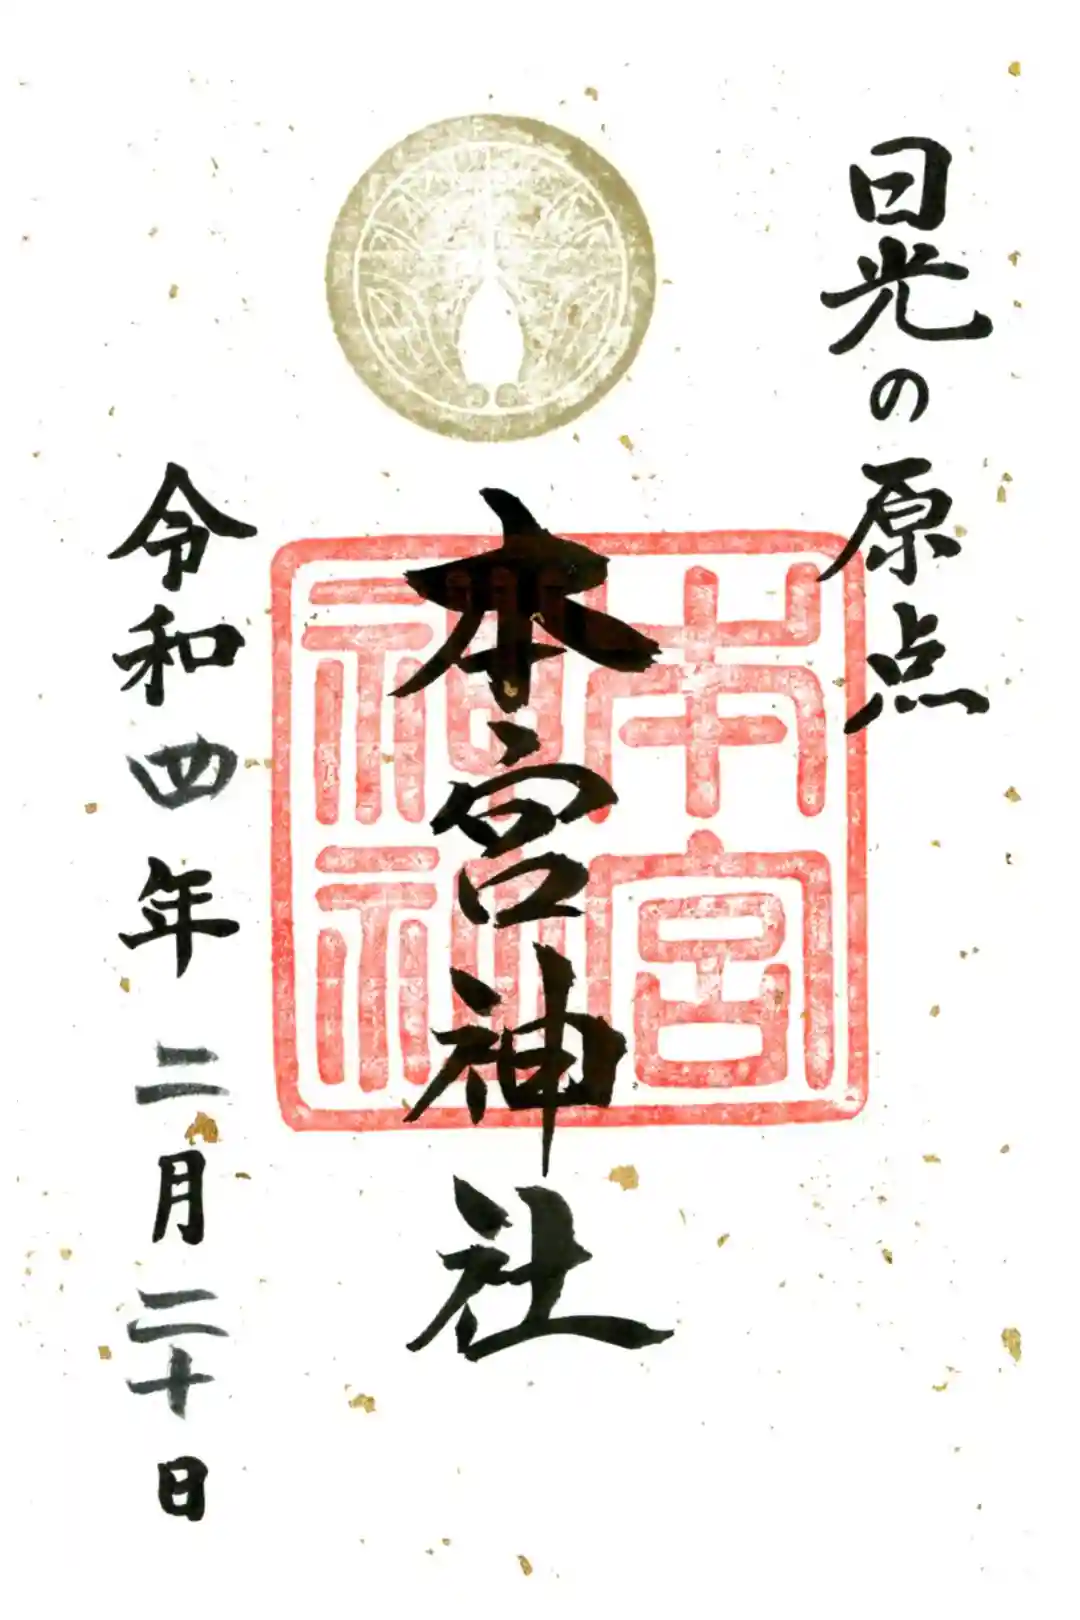 日光の原点
本宮神社
本宮
神社
令和四年二月二十日